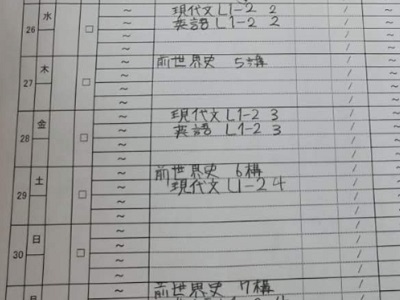 26 水 □
現代文 L1-2 2
英語 L1-2 2
27 木 □
前世界史 5構
28 金 □
現代文 L1-2 3
英語 L1-2 3
29 土 □
前世界史 6構
現代文 L1-2 4
30 日 □
前世界史 7構